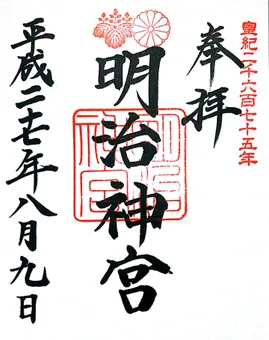 皇紀二千六百七十五年
奉拝
明治神宮
明治神宮
平成二十七年八月九日